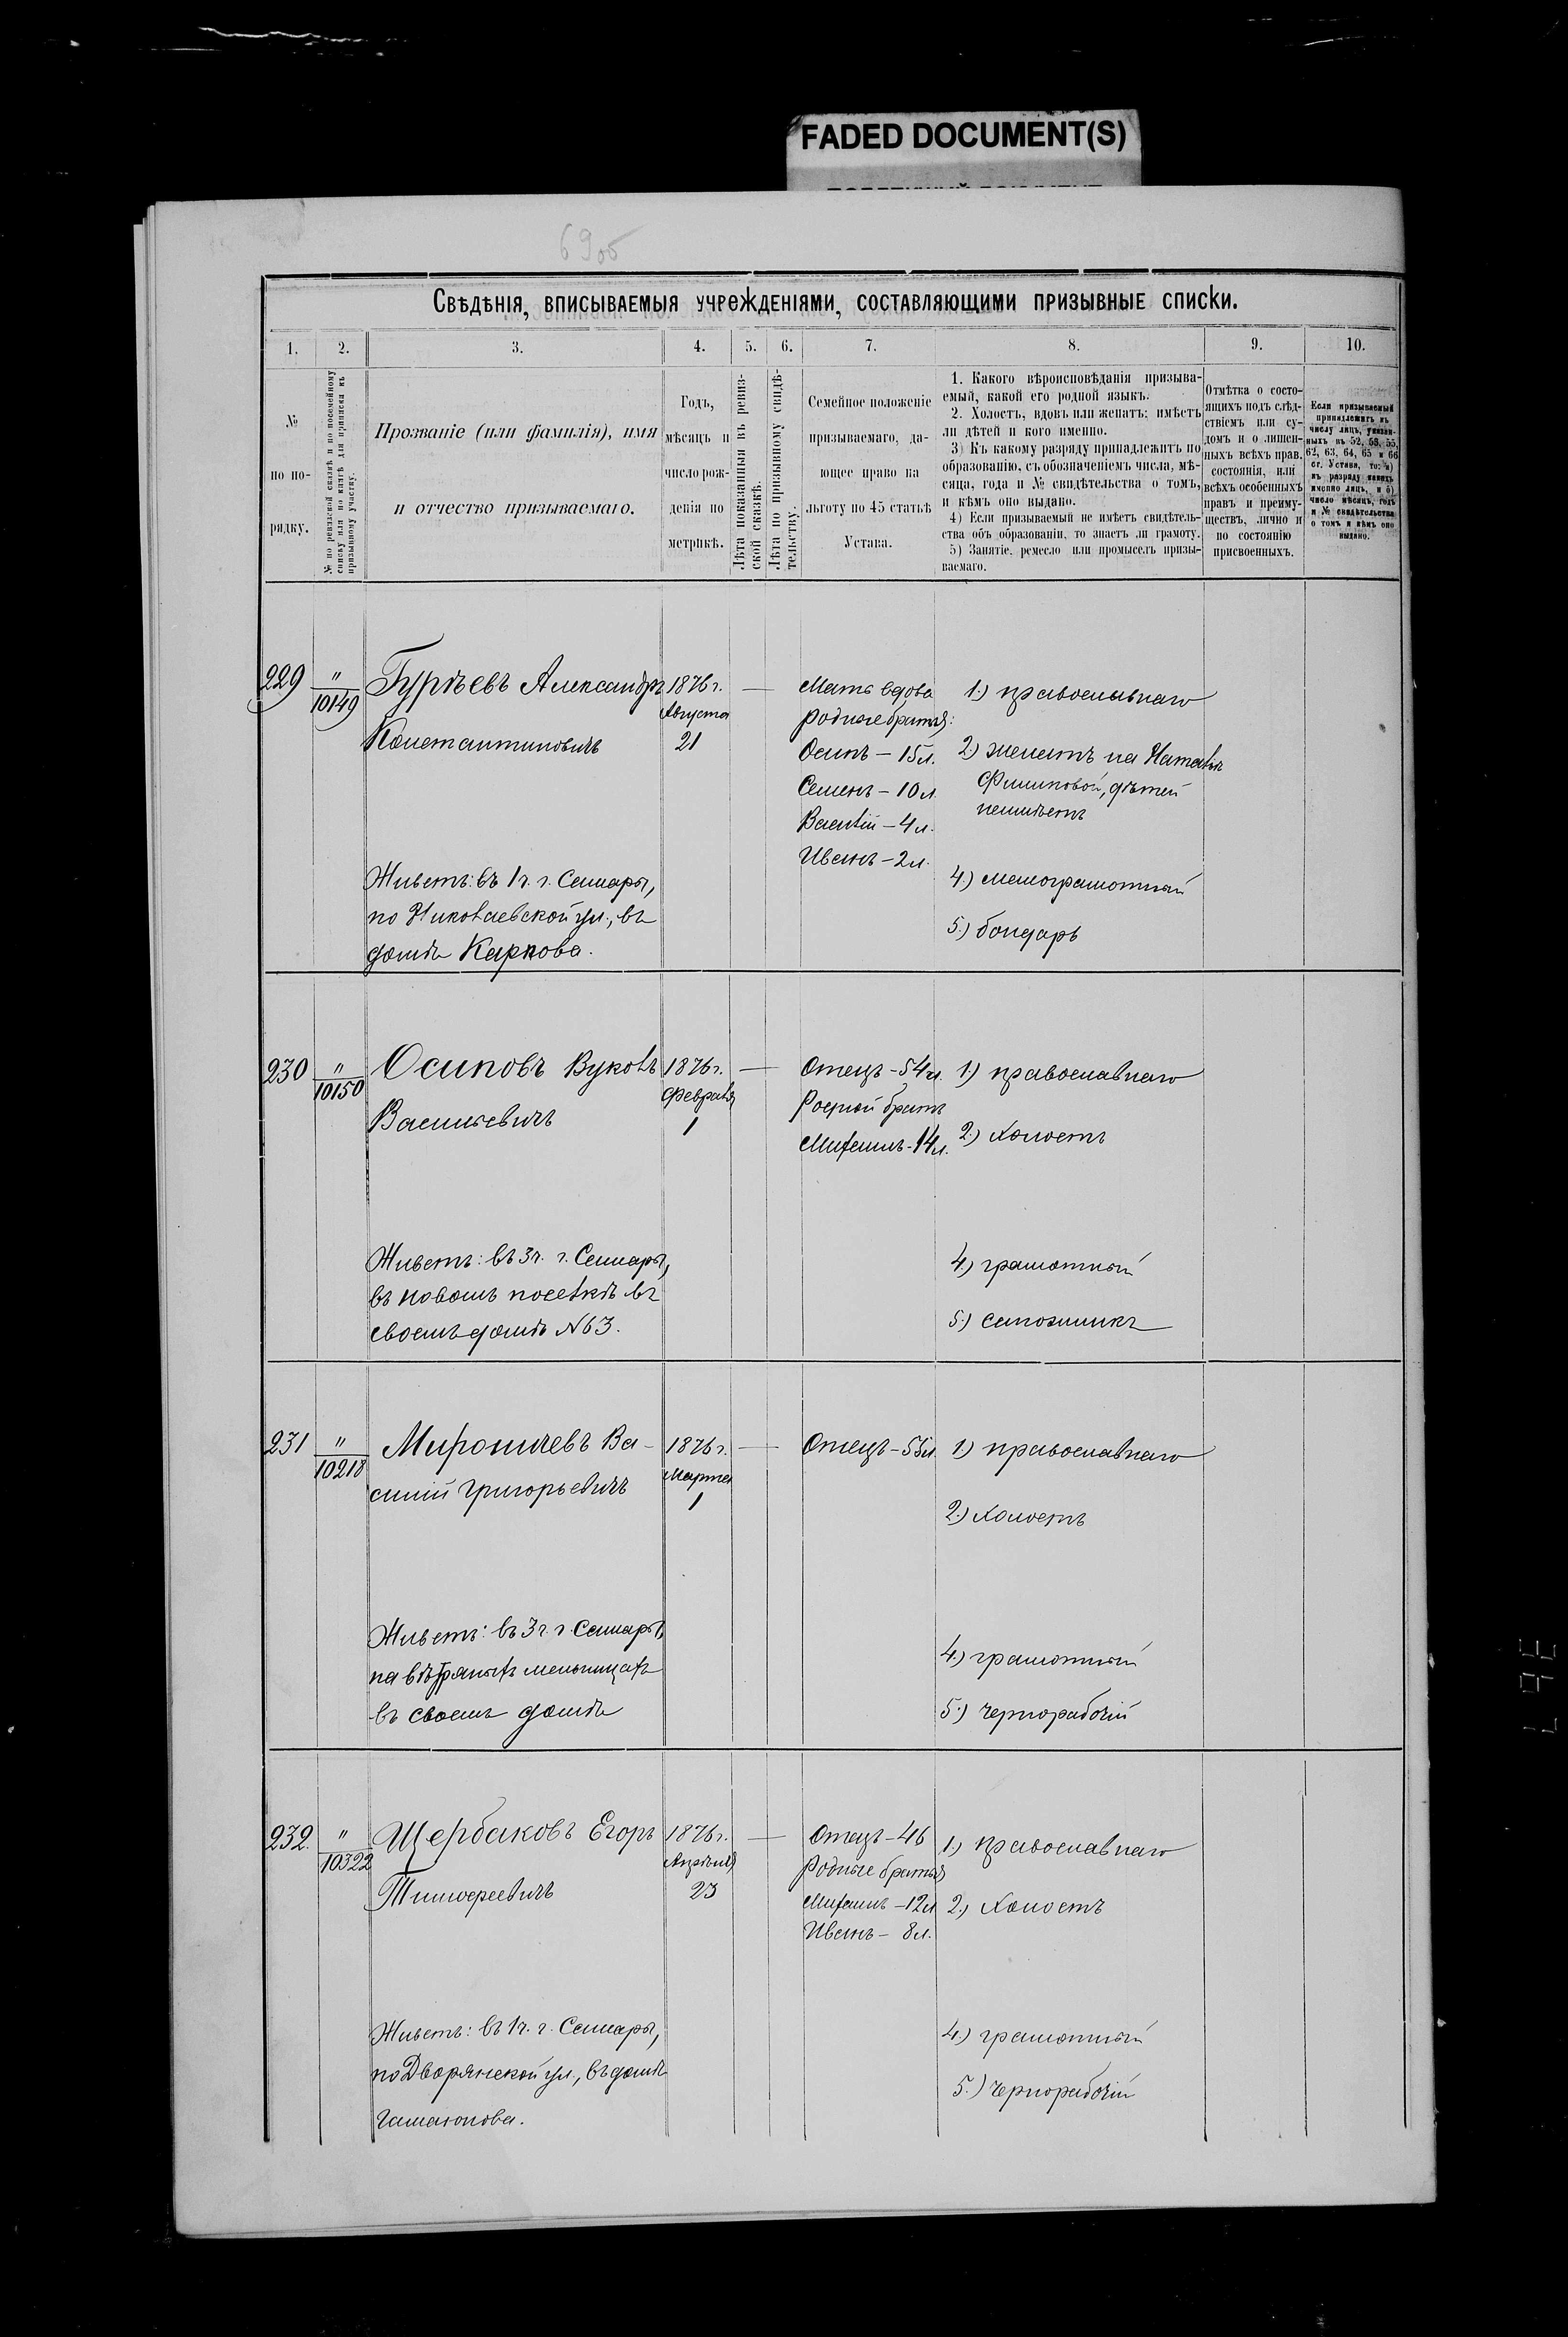 FADED DOCUMENT(S)
69об
Свѣдѣнія, вписываемыя учрежденіями, составляющими призывные списки.
1. 2. 3. 4. 5. 6. 7. 8. 9. 10.
№
по по-
рядку.
№ по ревизской сказкѣ и по посемейному
списку или по книгѣ для приписки къ
призывному участку.
Прозваніе (или фамилія), имя
и отчество призываемаго.
Годъ,
мѣсяцъ и
число рож-
денія по
метрикѣ.
Лѣта показанныя въ ревиз-
ской сказкѣ.
Лѣта по призывному свидѣ-
тельству.
Семейное положеніе
призываемаго, да-
ющее право на
льготу по 45 статьѣ
Устава.
1. Какого вѣроисповѣданія призыва-
емый, какой его родной языкъ.
2. Холостъ, вдовъ или женатъ; имѣетъ
ли дѣтей и кого именно.
3) Къ какому разряду принадлежитъ по
образованію, съ обозначеніемъ числа, мѣ-
сяца, года и № свидѣтельства о томъ,
и кѣмъ оно выдано.
4) Если призываемый не имѣетъ свидѣтель-
ства объ образованіи, то знаетъ ли грамоту.
5) Занятіе, ремесло или промыселъ призы-
ваемаго.
Отмѣтка о состо-
ящихъ подъ слѣд-
ствіемъ или су-
домъ и о лишен-
ныхъ всѣхъ прав.
состоянія, или
всѣхъ особенныхъ
правъ и преиму-
ществъ, лично и
по состоянію
присвоенныхъ.
Если призываемый
принадлежитъ къ
числу лицъ, указан-
ныхъ въ 52, 53, 55,
62, 63, 64, 65 и 66
ст. Устава, то: а)
къ разряду какихъ
именно лицъ, и б)
число мѣсяцъ, годъ
и № свидѣтельства
о томъ и кѣмъ оно
выдано.
229 " 10149
Гурьевъ Александръ
Константиновичъ
1876 г.
Августа
21
—
Мать вдова
родные братья:
Осипъ – 15 л.
Семенъ – 10 л.
Василій – 4 л.
Иванъ – 2 л.
1.) православнаго
2.) женатъ на Натальѣ
Фишковой, дѣтей
неимѣетъ
4.) малограмотный
5.) бондарь
Живетъ: въ 1 ч. г. Самары,
по Николаевской ул., въ
домѣ Карпова.
230 " 10150
Осиповъ Вуколъ
Васильевичъ
1876 г.
Февраля
1
—
Отецъ – 54 л.
Родной братъ
Михаилъ – 14 л.
1) православнаго
2.) Холостъ
4.) грамотный
5.) сапожникъ
Живетъ: въ 3 ч. г. Самары,
въ новомъ поселкѣ въ
своемъ домѣ № 63.
231 " 10218
Мироничевъ Ва-
силій Григорьевичъ
1876 г.
Марта
1
—
Отецъ – 55 л.
1) православнаго
2.) Холостъ
4.) грамотный
5.) чернорабочій
Живетъ: въ 3 ч. г. Самары,
на вѣтряныхъ мельницахъ
въ своемъ домѣ
232. " 10322
Щербаковъ Егоръ
Тимофеевичъ
1876 г.
Апрѣля
23
—
Отецъ – 46
Родные братья
Михаилъ – 12 л
Иванъ – 8 л.
1.) православнаго
2.) Холостъ
4.) грамотный
5.) чернорабочій
Живетъ: въ 1 ч. г. Самары,
по Дворянской ул., въ домѣ
Гамаюнова.